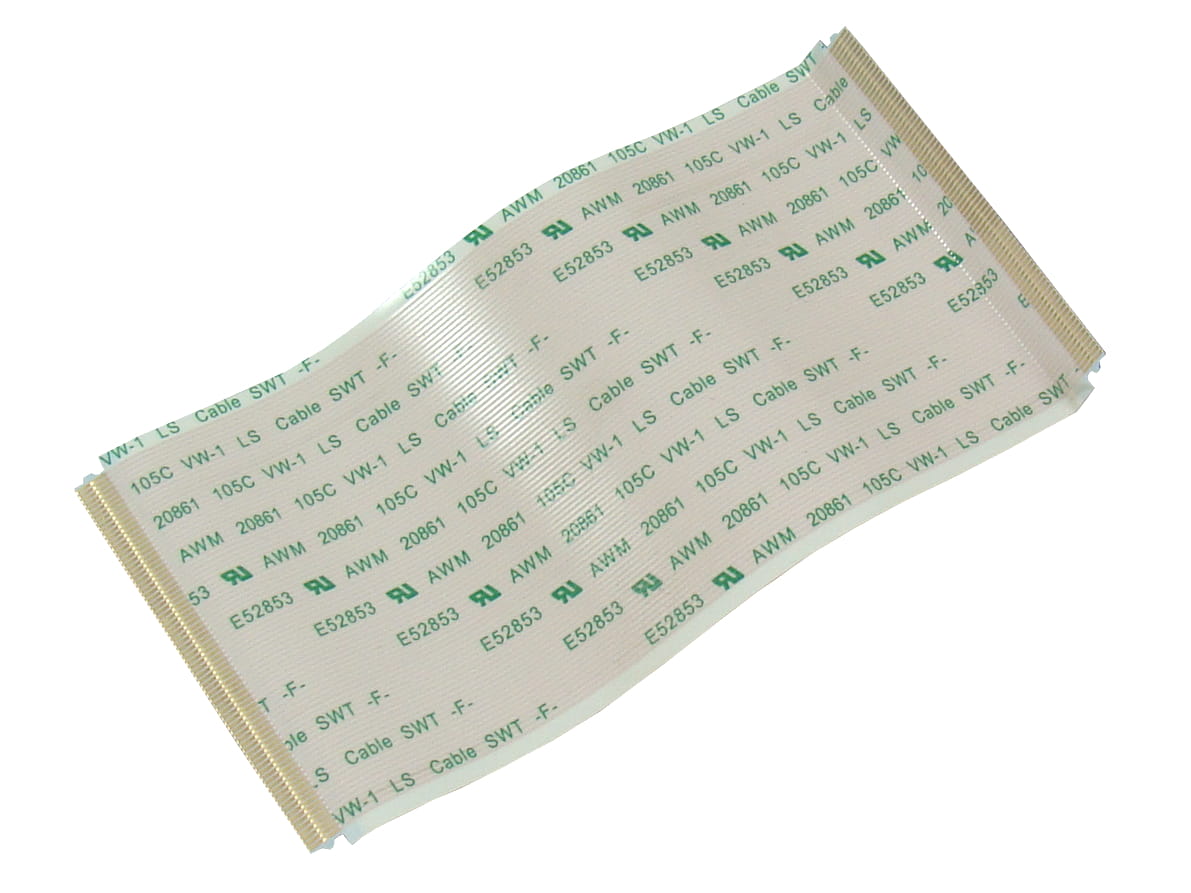 VW-1 LS Cable SWT -F- E52853 AWM 20861 105C VW-1 LS Cable SWT
105C VW-1 LS Cable SWT -F- E52853 AWM 20861 105C VW-1 LS Cable
20861 105C VW-1 LS Cable SWT -F- E52853 AWM 20861 105C VW-1 LS
AWM 20861 105C VW-1 LS Cable SWT -F- E52853 AWM 20861 105C VW
53 AWM 20861 105C VW-1 LS Cable SWT -F- E52853 AWM 20861 10
E52853 AWM 20861 105C VW-1 LS Cable SWT -F- E52853 AWM 20
E52853 AWM 20861 105C VW-1 LS Cable SWT -F- E52853 A
T -F- E52853 AWM 20861 105C VW-1 LS Cable SWT -F- E52853
ble SWT -F- E52853 AWM 20861 105C VW-1 LS Cable SWT -F- E
LS Cable SWT -F- E52853 AWM 20861 105C VW-1 LS Cable SWT -F-
VW-1 LS Cable SWT -F- E52853 AWM 20861 105C VW-1 LS Cable SWT